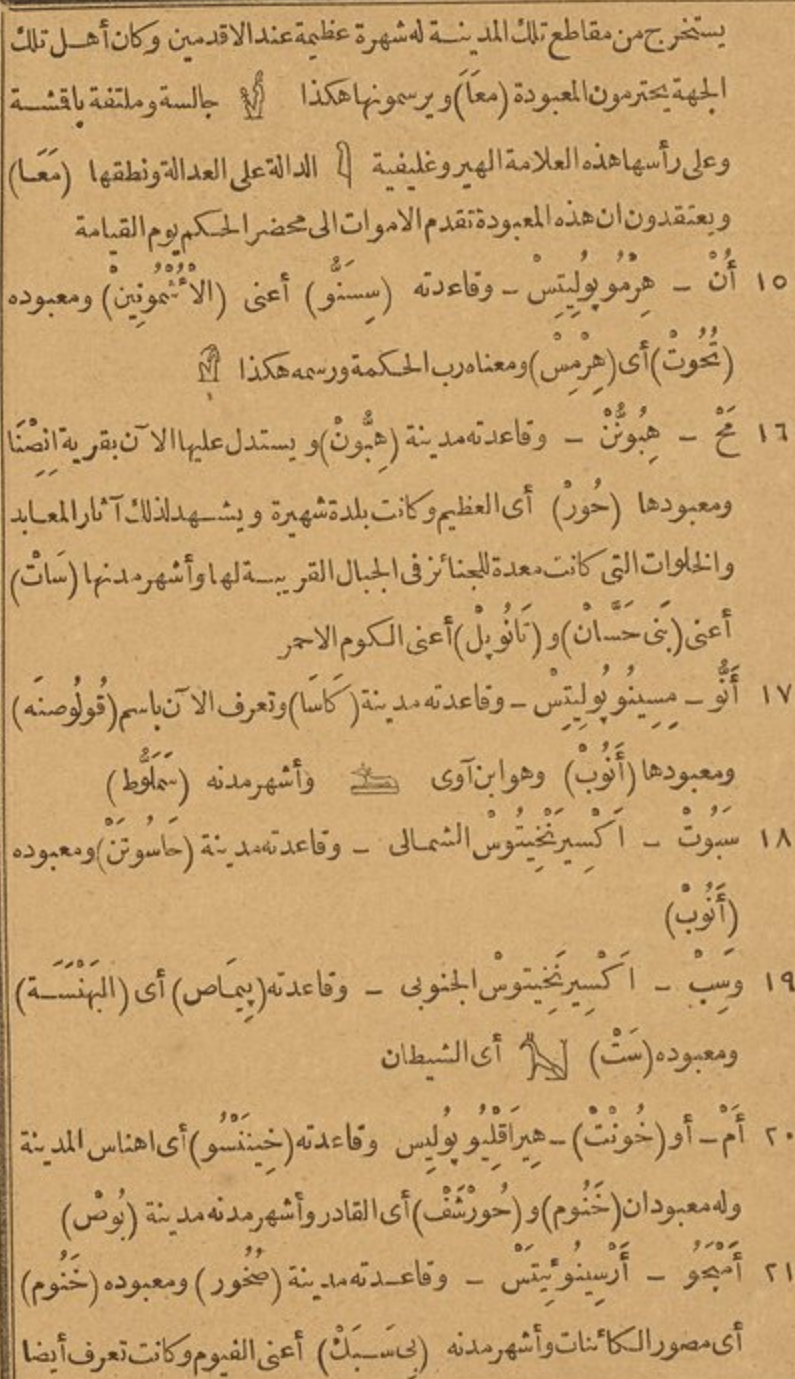 يستخرج من مقاطع تلك المدينة له شهرة عظيمة عند الاقدمين وكان أهل تلك
الجهة يحترمون المعبودة (معَاَ) ويرسمونها هكذا جالسة وملتفة باقشة
وعلى رأسها هذه العلامة الهيروغليفية الدالة على العدالة ونطقها (مَعَا)
ويعتقدون ان هذه المعبودة تقدم الاموات الى محضر الحكم يوم القيامة
١٥ أُنْ ــ هِرْمُو پُولِيتِسْ ــ وقاعدته (سِسَنُّو) أعنى (الاُشْمُونِينْ) ومعبوده
(تُحُوتْ) أى (هِرْمِسْ) ومعناه رب الحكمة ورسمه هكذا
١٦ مَحْ ــ هِبُونُنْ ــ وقاعدته مدينة (هِبُّونْ) ويستدل عليها الآن بقرية انِصْنَا
ومعبودها (حُورْ) أى العظيم وكانت بلدة شهيرة ويشهد لذلك آثار المعابد
والخلوات التى كانت معدة للجنائز فى الجبال القريبة لها وأشهر مدنها (سَاتْ)
أعنى (بَنى حَسَّانْ) و (تَانُوبِلْ) أعنى الكوم الاحمر
١٧ أَنُّو ــ مِسِينُو پُولِيتِسْ ــ وقاعدته مدينة (كَاسَا) وتعرف الآن باسم (قُولُوصنَه)
ومعبودها (أَنُوبْ) وهو ابن آوى وأشهر مدنه (سَمَلُّوط)
١٨ سَبُوتْ ــ اَكْسِيرَنْخِيتُوسْ الشمالى ــ وقاعدته مدينة (حَاسُوتَنْ) ومعبوده
(أَنُوبْ)
١٩ وسِبْ ــ اَكْسِيرَنْخِيتوسْ الجنوبى ــ وقاعدته (پِيمَاص) أى (البَهْنَسَة)
ومعبوده (سَتْ) أى الشيطان
٢٠ أَمْ ــ أو (خُونْتْ) ــ هِيرَاقْلِيُو پُولِيِس وقاعدته (خِينَنْسُو) أى اهناس المدينة
وله معبودان (خَنُوم) و (حُورْشَفْ) أى القادر وأشهر مدنه مدينة (بُوصْ)
٢١ أَمْبَحُو ــ أَرْسِينُوئِيتَسْ ــ وقاعدته مدينة (صُخُور) ومعبوده (خَنُوم)
أى مصور الكائنات وأشهر مدنه (پى سَبَكْ) أعنى الفيوم وكانت تعرف أيضا